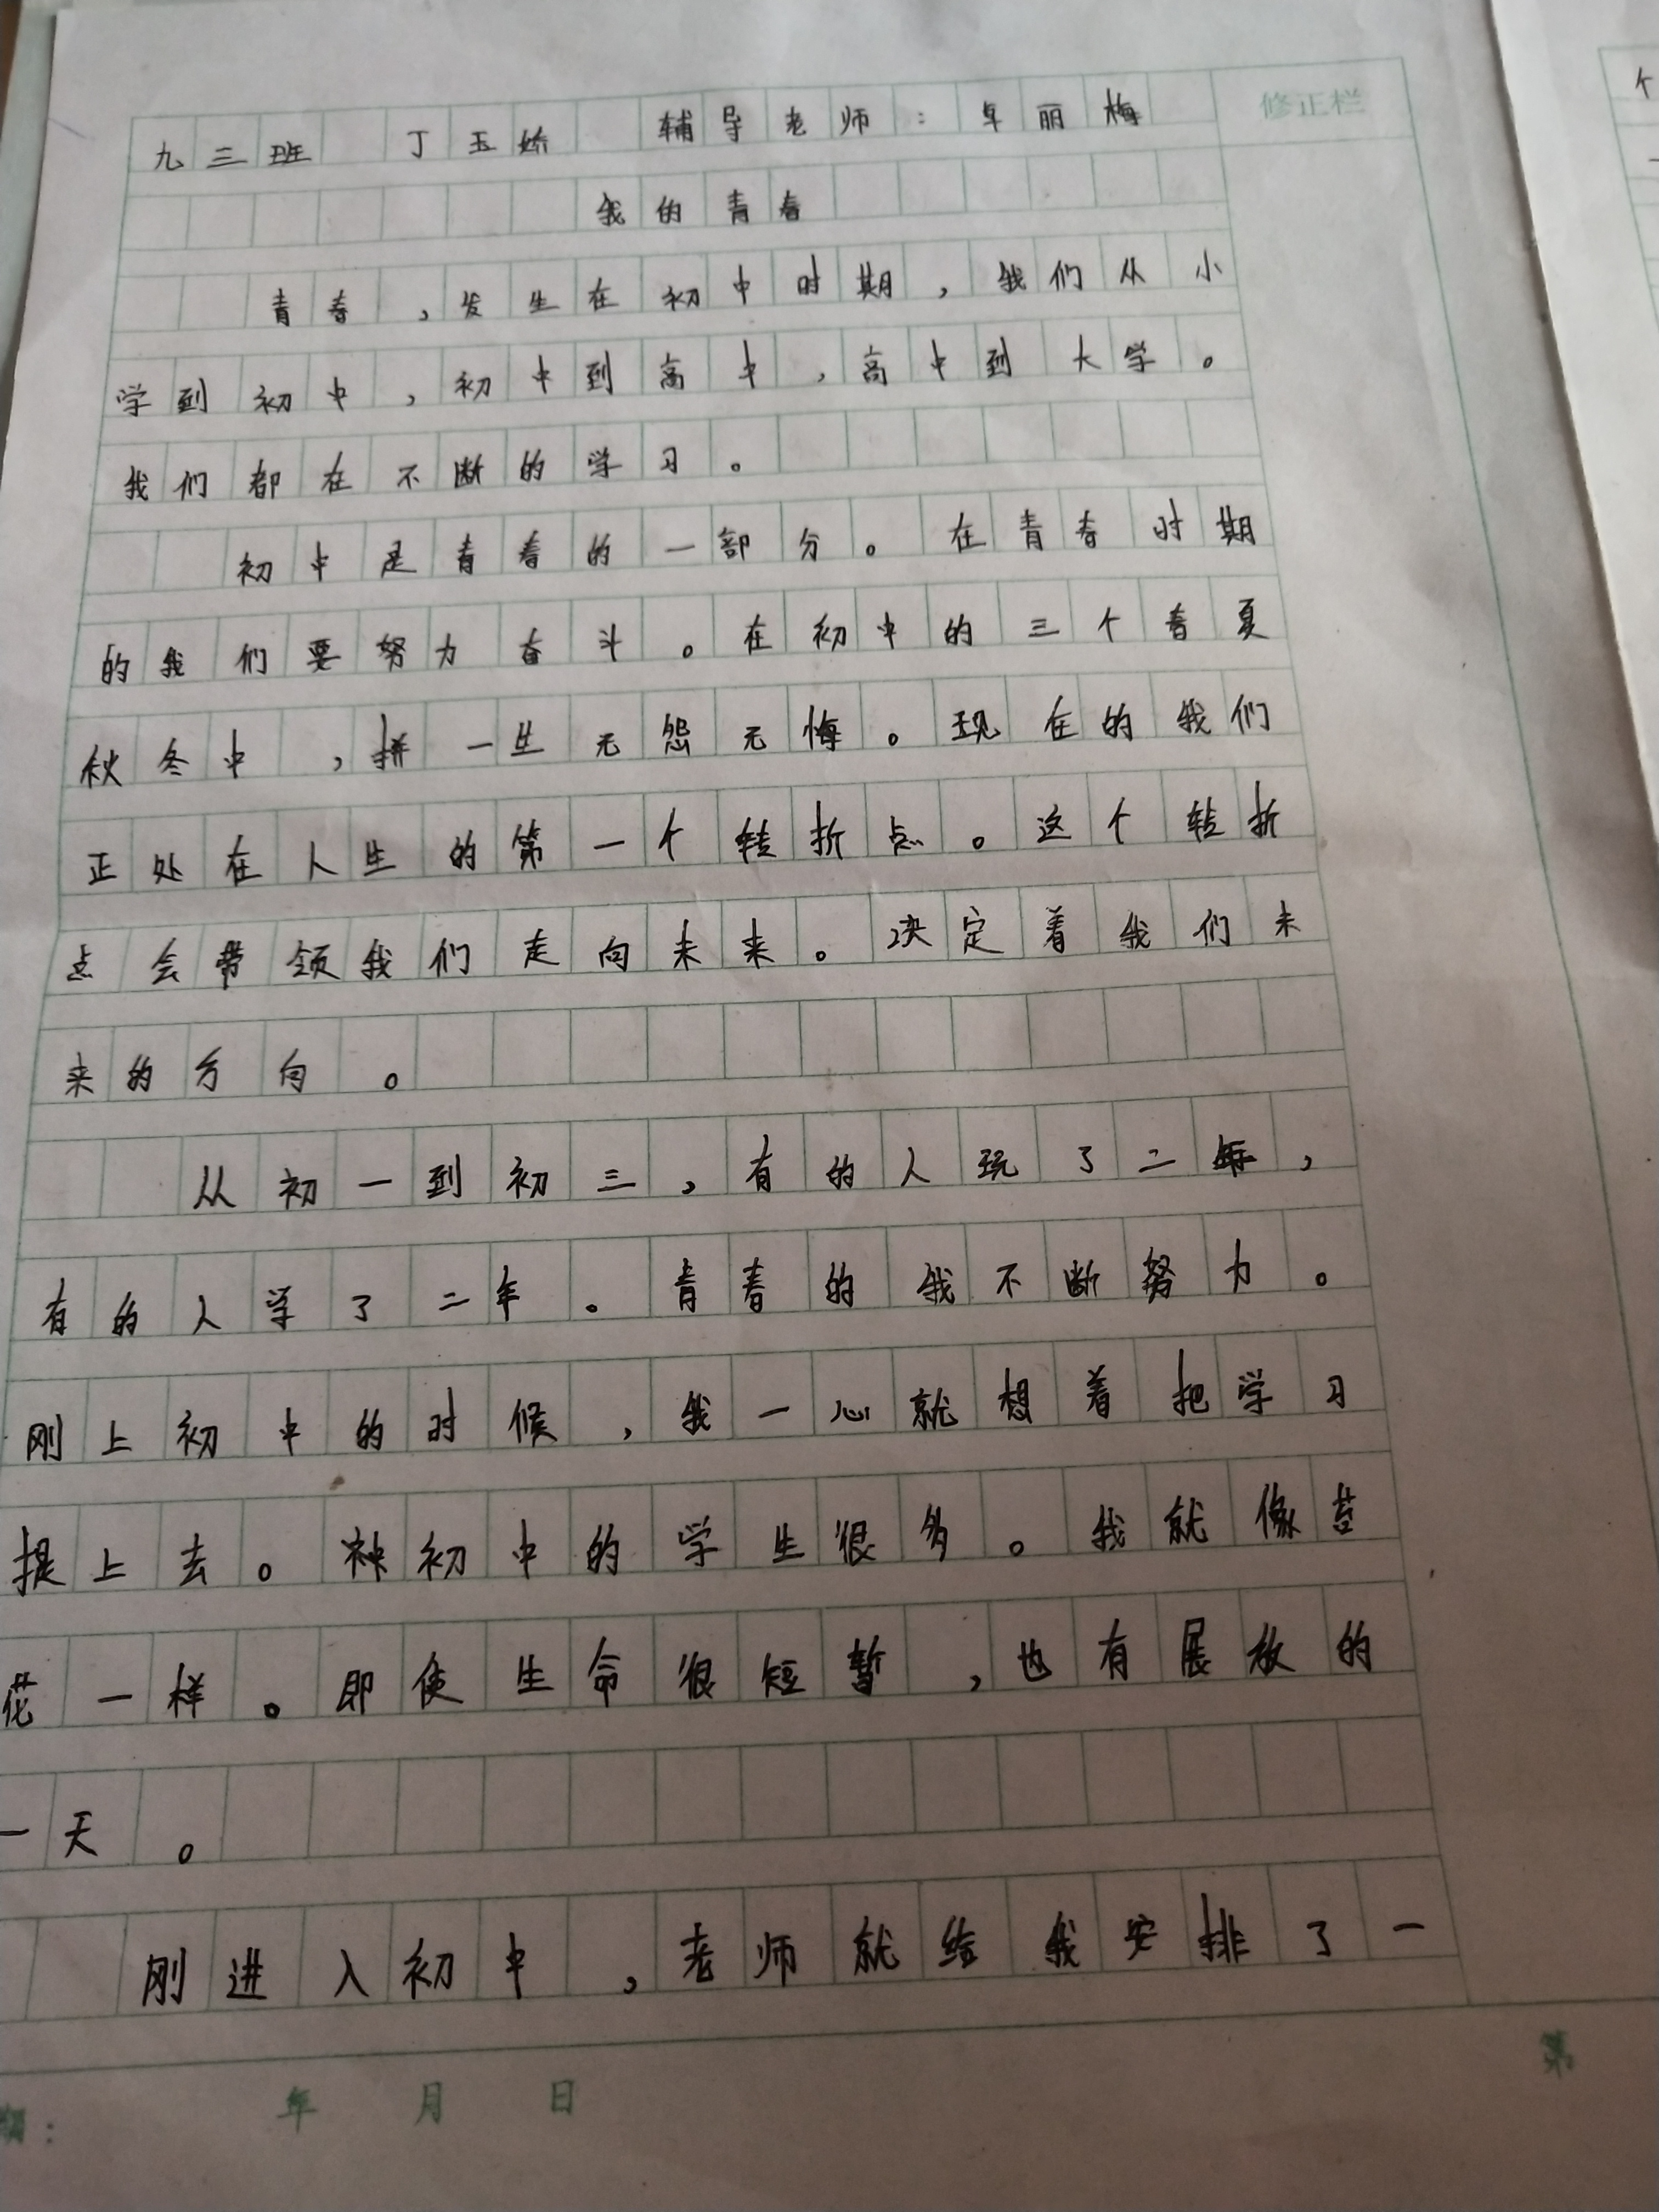 九三班 丁玉娇 辅导老师：卓丽梅
修正栏
我的青春
青春，发生在初中时期，我们从小
学到初中，初中到高中，高中到大学。
我们都在不断的学习。
初中是青春的一部分。在青春时期
的我们要努力奋斗。在初中的三个春夏
秋冬中，拼一生无怨无悔。现在的我们
正处在人生的第一个转折点。这个转折
点会带领我们走向未来。决定着我们未
来的方向。
从初一到初三，有的人玩了二年，
有的人学了二年。青春的我不断努力。
刚上初中的时候，我一心就想着把学习
提上去。神初中的学生很多。我就像苔
花一样。即使生命很短暂，也有展放的
一天。
刚进入初中，老师就给我安排了一
年 月 日
第
个